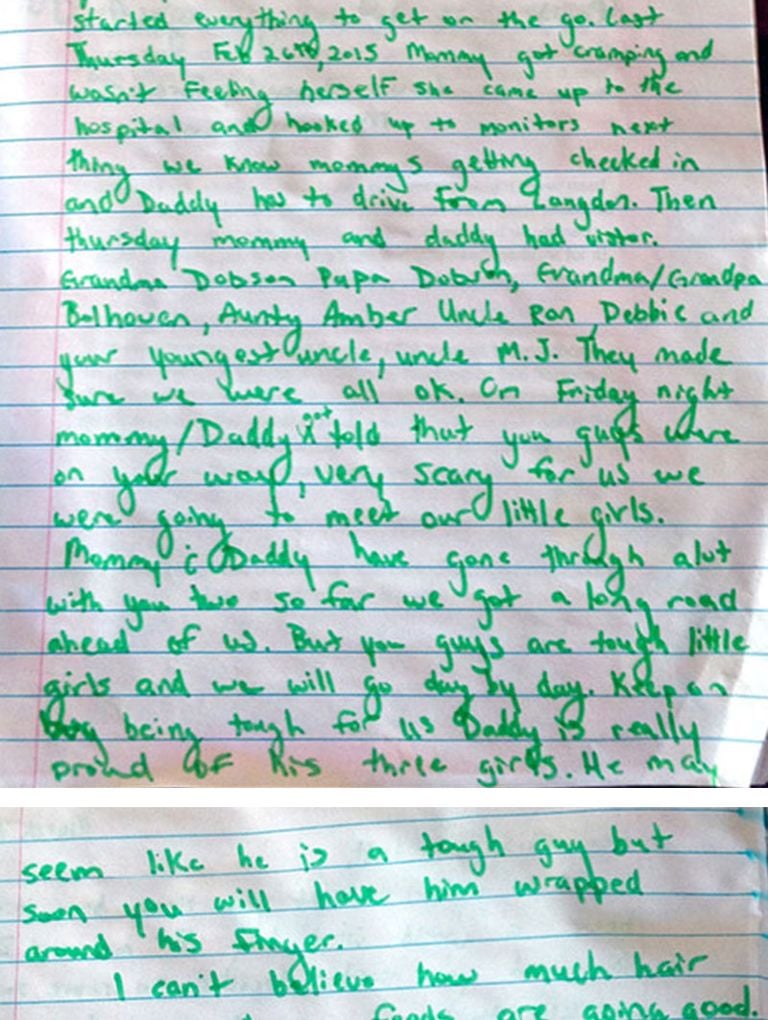 started everything to get on the go. Last
Thursday Feb 26th, 2015 Mommy got cramping and
wasn't feeling herself she came up to the
hospital and hooked up to monitors next
thing we know mommys getting checked in
and Daddy has to drive from Langdon. Then
thursday mommy and daddy had vistor.
Grandma Dobson Papa Dobson, Grandma/Grandpa
Bolhoven, Aunty Amber Uncle Ron, Debbie and
your youngest uncle, uncle M.J. They made
sure we were all ok. On Friday night
mommy/Daddy got told that you guys were
on your way, very scary for us we
were going to meet our little girls.
Mommy & Daddy have gone through alot
with you two so far we got a long road
ahead of us. But you guys are tough little
girls and we will go day by day. Keep on
being tough for us Daddy is really
proud of his three girls. He may
seem like he is a tough guy but
soon you will have him wrapped
around his finger.
I can't believe how much hair
feeds are going good.